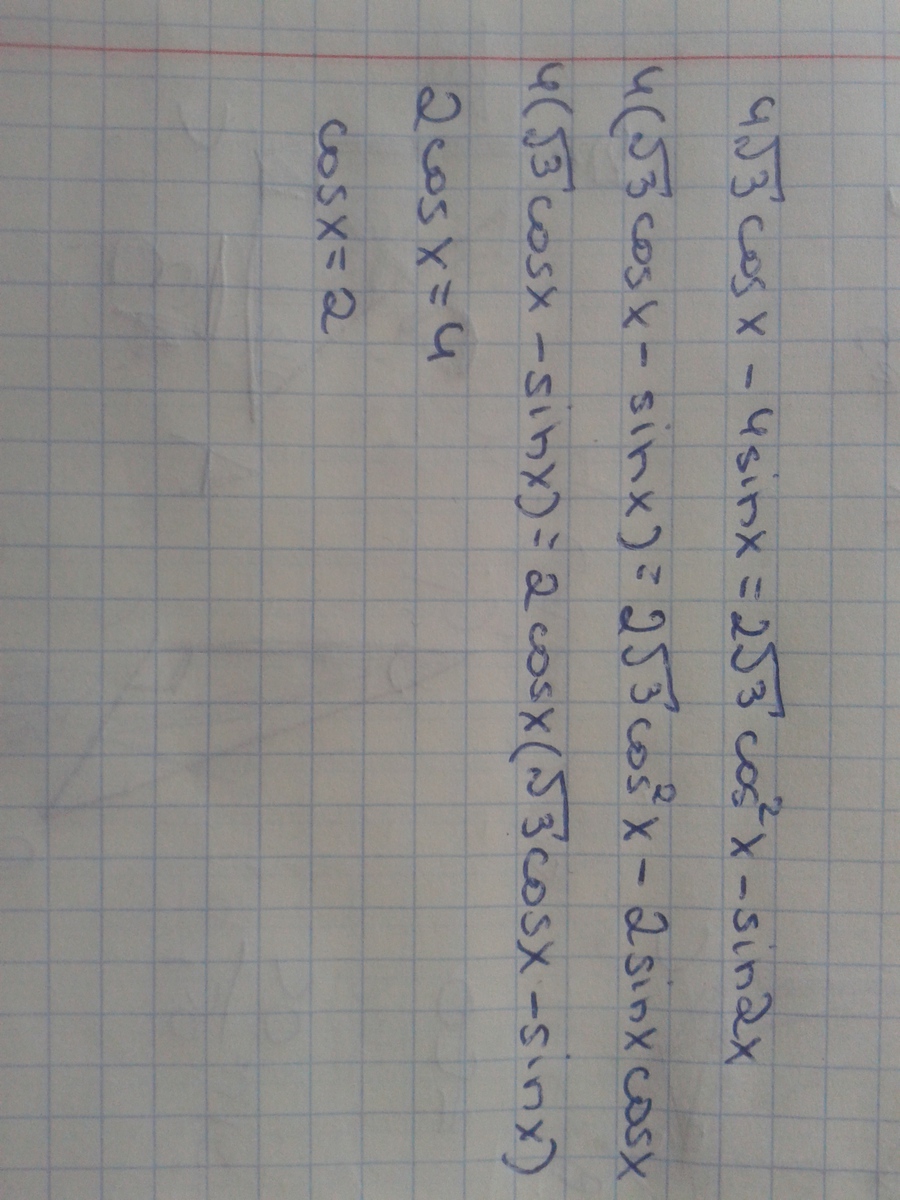 4√3 cos x - 4sinx = 2√3 cos²x - sin2x
4(√3 cosx - sinx) = 2√3 cos²x - 2sinx cosx
4(√3 cosx - sinx) = 2 cosx(√3 cosx - sinx)
2 cos x = 4
cos x = 2